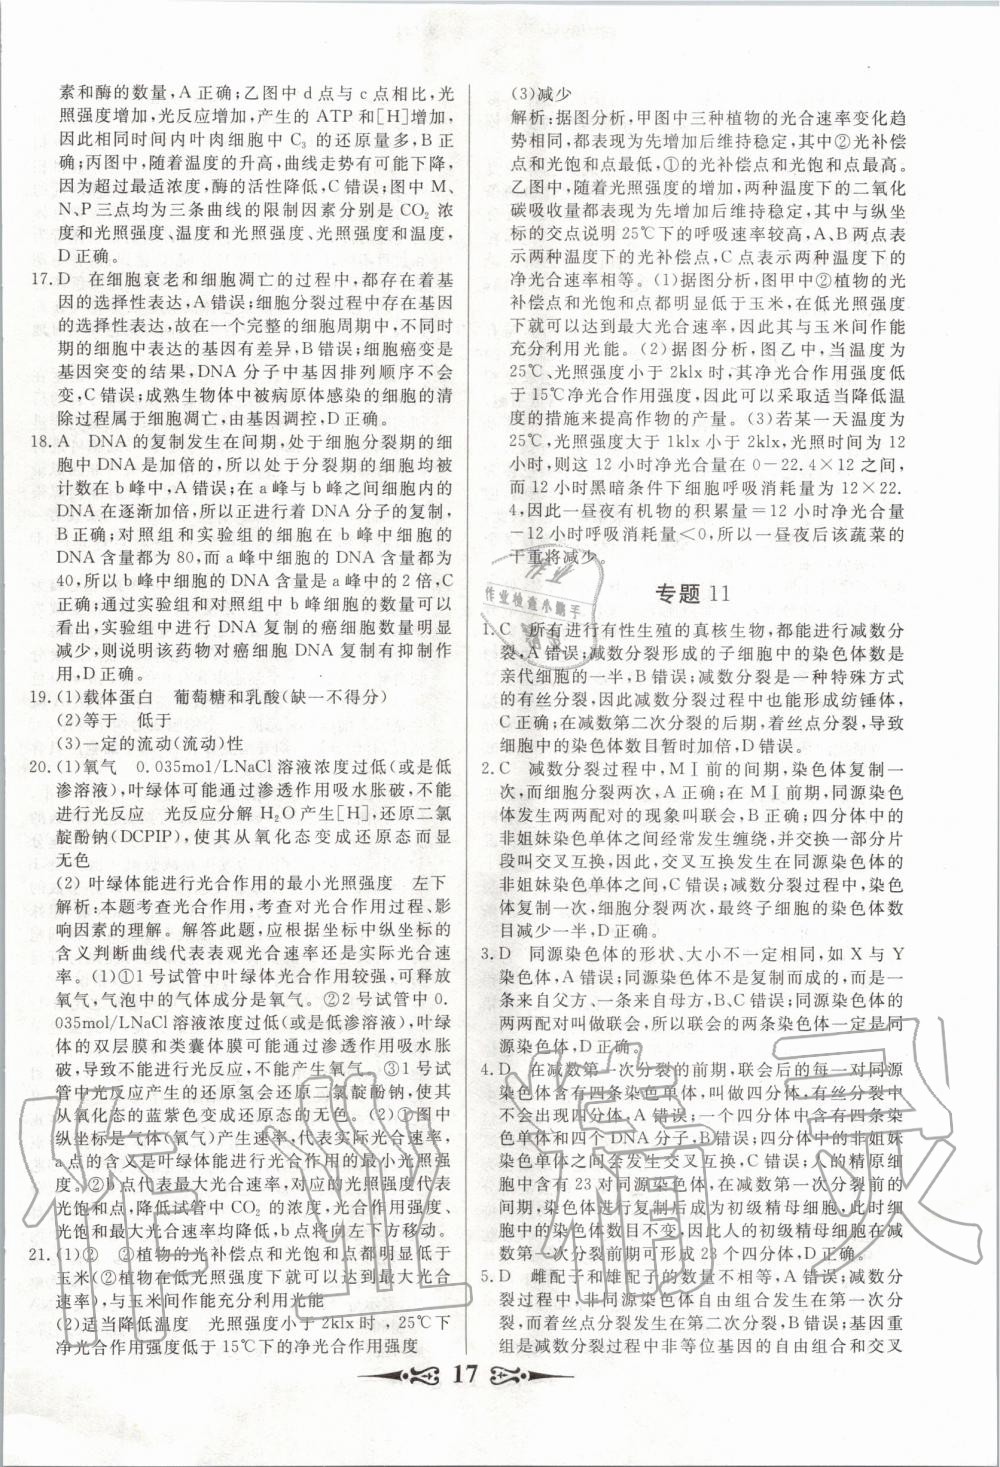 素和酶的数量,A正确;乙图中d点与c点相比,光
照强度增加,光反应增加,产生的ATP和[H]增加,
因此相同时间内叶肉细胞中C₃的还原量多,B正
确;丙图中,随着温度的升高,曲线走势有可能下降,
因为超过最适浓度,酶的活性降低,C错误;图中M、
N、P三点均为三条曲线的限制因素分别是CO₂浓
度和光照强度、温度和光照强度、光照强度和温度,
D正确。
17.D 在细胞衰老和细胞凋亡的过程中,都存在着基
因的选择性表达,A错误;细胞分裂过程中存在基因
的选择性表达,故在一个完整的细胞周期中,不同时
期的细胞中表达的基因有差异,B错误;细胞癌变是
基因突变的结果,DNA分子中基因排列顺序不会
变,C错误;成熟生物体中被病原体感染的细胞的清
除过程属于细胞凋亡,由基因调控,D正确。
18.A DNA的复制发生在间期,处于细胞分裂期的细
胞中DNA是加倍的,所以处于分裂期的细胞均被
计数在b峰中,A错误;在a峰与b峰之间细胞内的
DNA在逐渐加倍,所以正进行着DNA分子的复制,
B正确;对照组和实验组的细胞在b峰中细胞的
DNA含量都为80,而a峰中细胞的DNA含量都为
40,所以b峰中细胞的DNA含量是a峰中的2倍,C
正确;通过实验组和对照组b峰中的细胞数量可以
看出,实验组中进行DNA复制的癌细胞数量明显
减少,则说明该药物对癌细胞DNA复制有抑制作
用,D正确。
19.(1)载体蛋白 葡萄糖和乳酸(缺一不得分)
(2)等于 低于
(3)一定的流动(流动)性
20.(1)氧气 0.035mol/LNaCl溶液浓度过低(或是低
渗溶液),叶绿体可能通过渗透作用吸水胀破,不能
进行光反应 光反应分解H₂O产生[H],还原二氯
酚酚钠(DCPIP),使其从氧化态变成还原态而显
无色
(2)叶绿体能进行光合作用的最小光照强度 左下
解析:本题考查光合作用,考查对光合作用过程、影
响因素的理解。解答此题,应根据坐标中纵坐标的
含义判断曲线代表表观光合速率还是实际光合速
率。(1)①1号试管中叶绿体光合作用较强,可释放
氧气,气泡中的气体成分是氧气。②2号试管中0.
035mol/LNaCl溶液浓度过低(或是低渗溶液),叶绿
体的双层膜和类囊体膜可能通过渗透作用吸水胀
破,导致不能进行光反应,不能产生氧气。③1号试
管中光反应产生的还原氢会还原二氯酚酚钠,使其
从氧化态的蓝紫色变成还原态的无色。(2)①图中
纵坐标是气体(氧气)产生速率,代表实际光合速率,
a点的含义是叶绿体能进行光合作用的最小光照强
度。②b点代表最大光合速率,此时适当降低光照
强度,降低试管中CO₂的浓度,光合作用强度、
光饱和最大光合速率均降低,b点将向左下方移动。
21.(1)② ②植物的光补偿点和光饱和点都明显低于
玉米(②植物在低光照强度下就可以达到最大光合
速率),与玉米间作能充分利用光能
(2)适当降低温度 光照强度小于2klx时,25℃下
净光合作用强度低于15℃下的净光合作用强度
(3)减少
解析:据图分析,甲图中三种植物的光合速率变化趋
势相同,都表现为先增加后维持稳定,其中②光补偿
点和光饱和点最低,①的光补偿点和光饱和点最高。
乙图中,随着光照强度的增加,两种温度下的二氧化
碳吸收量都表现为先增加后维持稳定,其中与纵坐
标的交点说明25℃下的呼吸速率较高,A、B两点表
示两种温度下的光补偿点,C点表示两种温度下的
净光合速率相等。(1)据图分析,图甲中②植物的光
补偿点和光饱和点都明显低于玉米,在低光照强度
下就可以达到最大光合速率,因此其与玉米间作能
充分利用光能。(2)据图分析,图乙中,当温度为
25℃、光照强度小于2klx时,其净光合作用强度低
于15℃净光合作用强度,因此可以采取适当降低温
度的措施来提高作物的产量。(3)若某一天温度为
25℃,光照强度大于1klx小于2klx,光照时间为12
小时,则这12小时净光合量在0-22.4×12之间,
而12小时黑暗条件下细胞呼吸消耗量为12×22.
4,因此一昼夜有机物的积累量=12小时净光合量
-12小时呼吸消耗量<0,所以一昼夜后该蔬菜的
干重将减少。
专题11
1.C 所有进行有性生殖的真核生物,都能进行减数分
裂,A错误;减数分裂形成的子细胞中的染色体数是
亲代细胞的一半,B错误;减数分裂是一种特殊方式
的有丝分裂,因此减数分裂过程中也能形成纺锤体,
C正确;在减数第二次分裂的后期,着丝点分裂,导致
细胞中的染色体数目暂时加倍,D错误。
2.C 减数分裂过程中,MⅠ前的间期,染色体复制一
次,而细胞分裂两次,A正确;在MⅠ前期,同源染色
体发生两两配对的现象叫联会,B正确;四分体中的
非姐妹染色单体之间经常发生缠绕,并交换一部分片
段叫交叉互换,因此,交叉互换发生在同源染色体的
非姐妹染色单体之间,C错误;减数分裂过程中,染色
体复制一次,细胞分裂两次,最终子细胞中的染色体数
目减少一半,D正确。
3.D 同源染色体的形状、大小不一定相同,如X与Y
染色体,A错误;同源染色体不是复制而成的,而是一
条来自父方、一条来自母方,B、C错误;同源染色体的
两两配对叫做联会,所以联会的两条染色体一定是同
源染色体,D正确。
4.D 在减数第一次分裂的前期,联会后的每一对同源
染色体含有四条染色单体,叫做四分体,有丝分裂中
不会出现四分体,A错误;一个四分体中含有四条染
色单体和四个DNA分子,B错误;四分体中的非姐妹
染色单体之间会发生交叉互换,C错误;人的精原细
胞中含有23对同源染色体,在减数第一次分裂前的
间期,染色体进行复制后形成初级精母细胞,此时细
胞中同源染色体的对数不变,因此人的初级精母细胞在减
数第一次分裂前期可形成23个四分体,D正确。
5.D 雌配子和雄配子的数量不相等,A错误;减数分
裂过程中,非同源染色体自由组合发生在第一次分
裂,而着丝点分裂发生在第二次分裂,B错误;基因重
组是减数分裂过程中非等位基因的自由组合和交叉
17
作业检查小能手
作业精灵